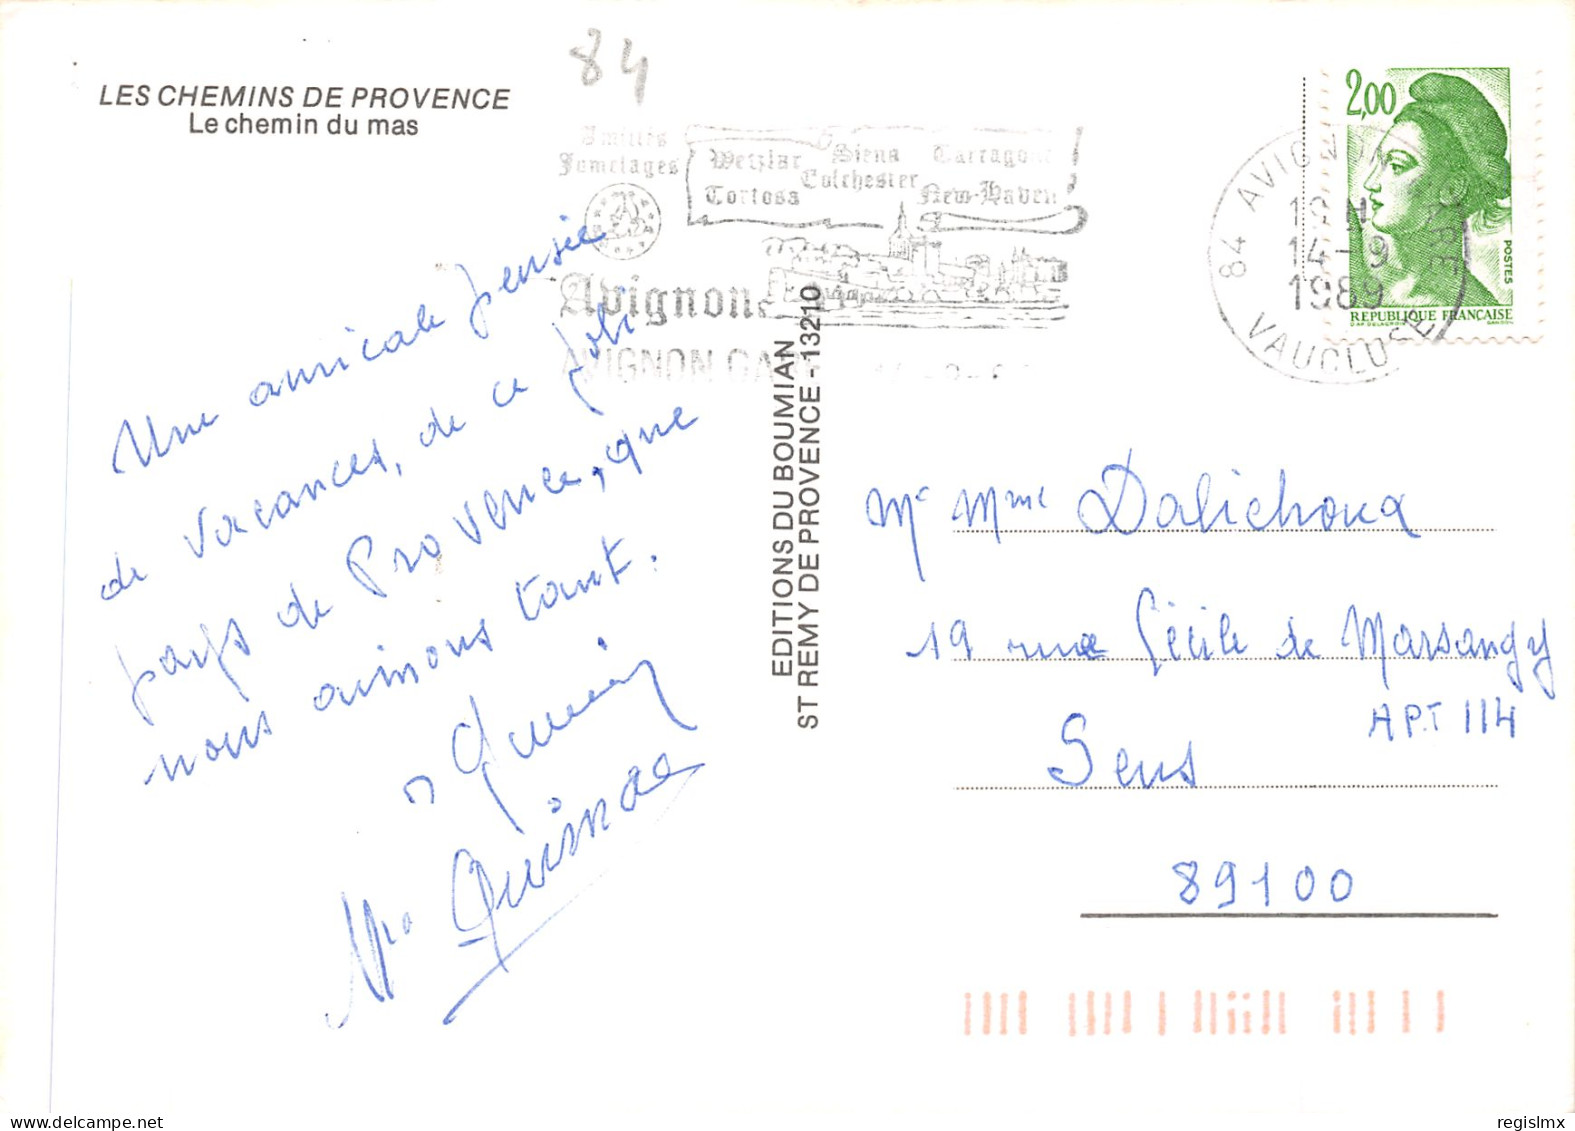 84
LES CHEMINS DE PROVENCE
Le chemin du mas
Amitiés
Jumelages
Wetzlar Siena Tarragone
Colchester
Tortosa New-Haven
Avignon
AVIGNON GARE
84 AVIGNON GARE
14-9
1989
VAUCLUSE
2,00
POSTES
REPUBLIQUE FRANÇAISE
Une amicale pensée
de vacances, de ce joli
pays de Provence, que
nous aimons tant.
EDITIONS DU BOUMIAN
ST REMY DE PROVENCE - 13210
Mr Mme Dalichoux
19 rue Cécile de Marsangy
APT 114
Sens
89100
delcampe.net
regislmx